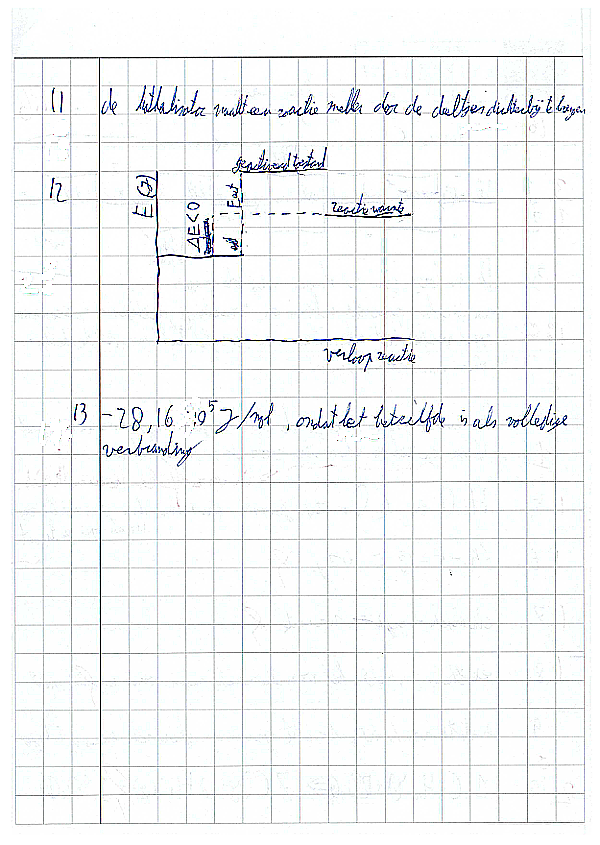 11 de katalisator maakt een reactie sneller door de deeltjes dichterbij te brengen
geactiveerd toestand
12
E (J)
ΔE<0
Eact
reactiewarmte
verloop reactie
13 -28,16 · 10⁵ J/mol, omdat het hetzelfde is als volledige
verbranding